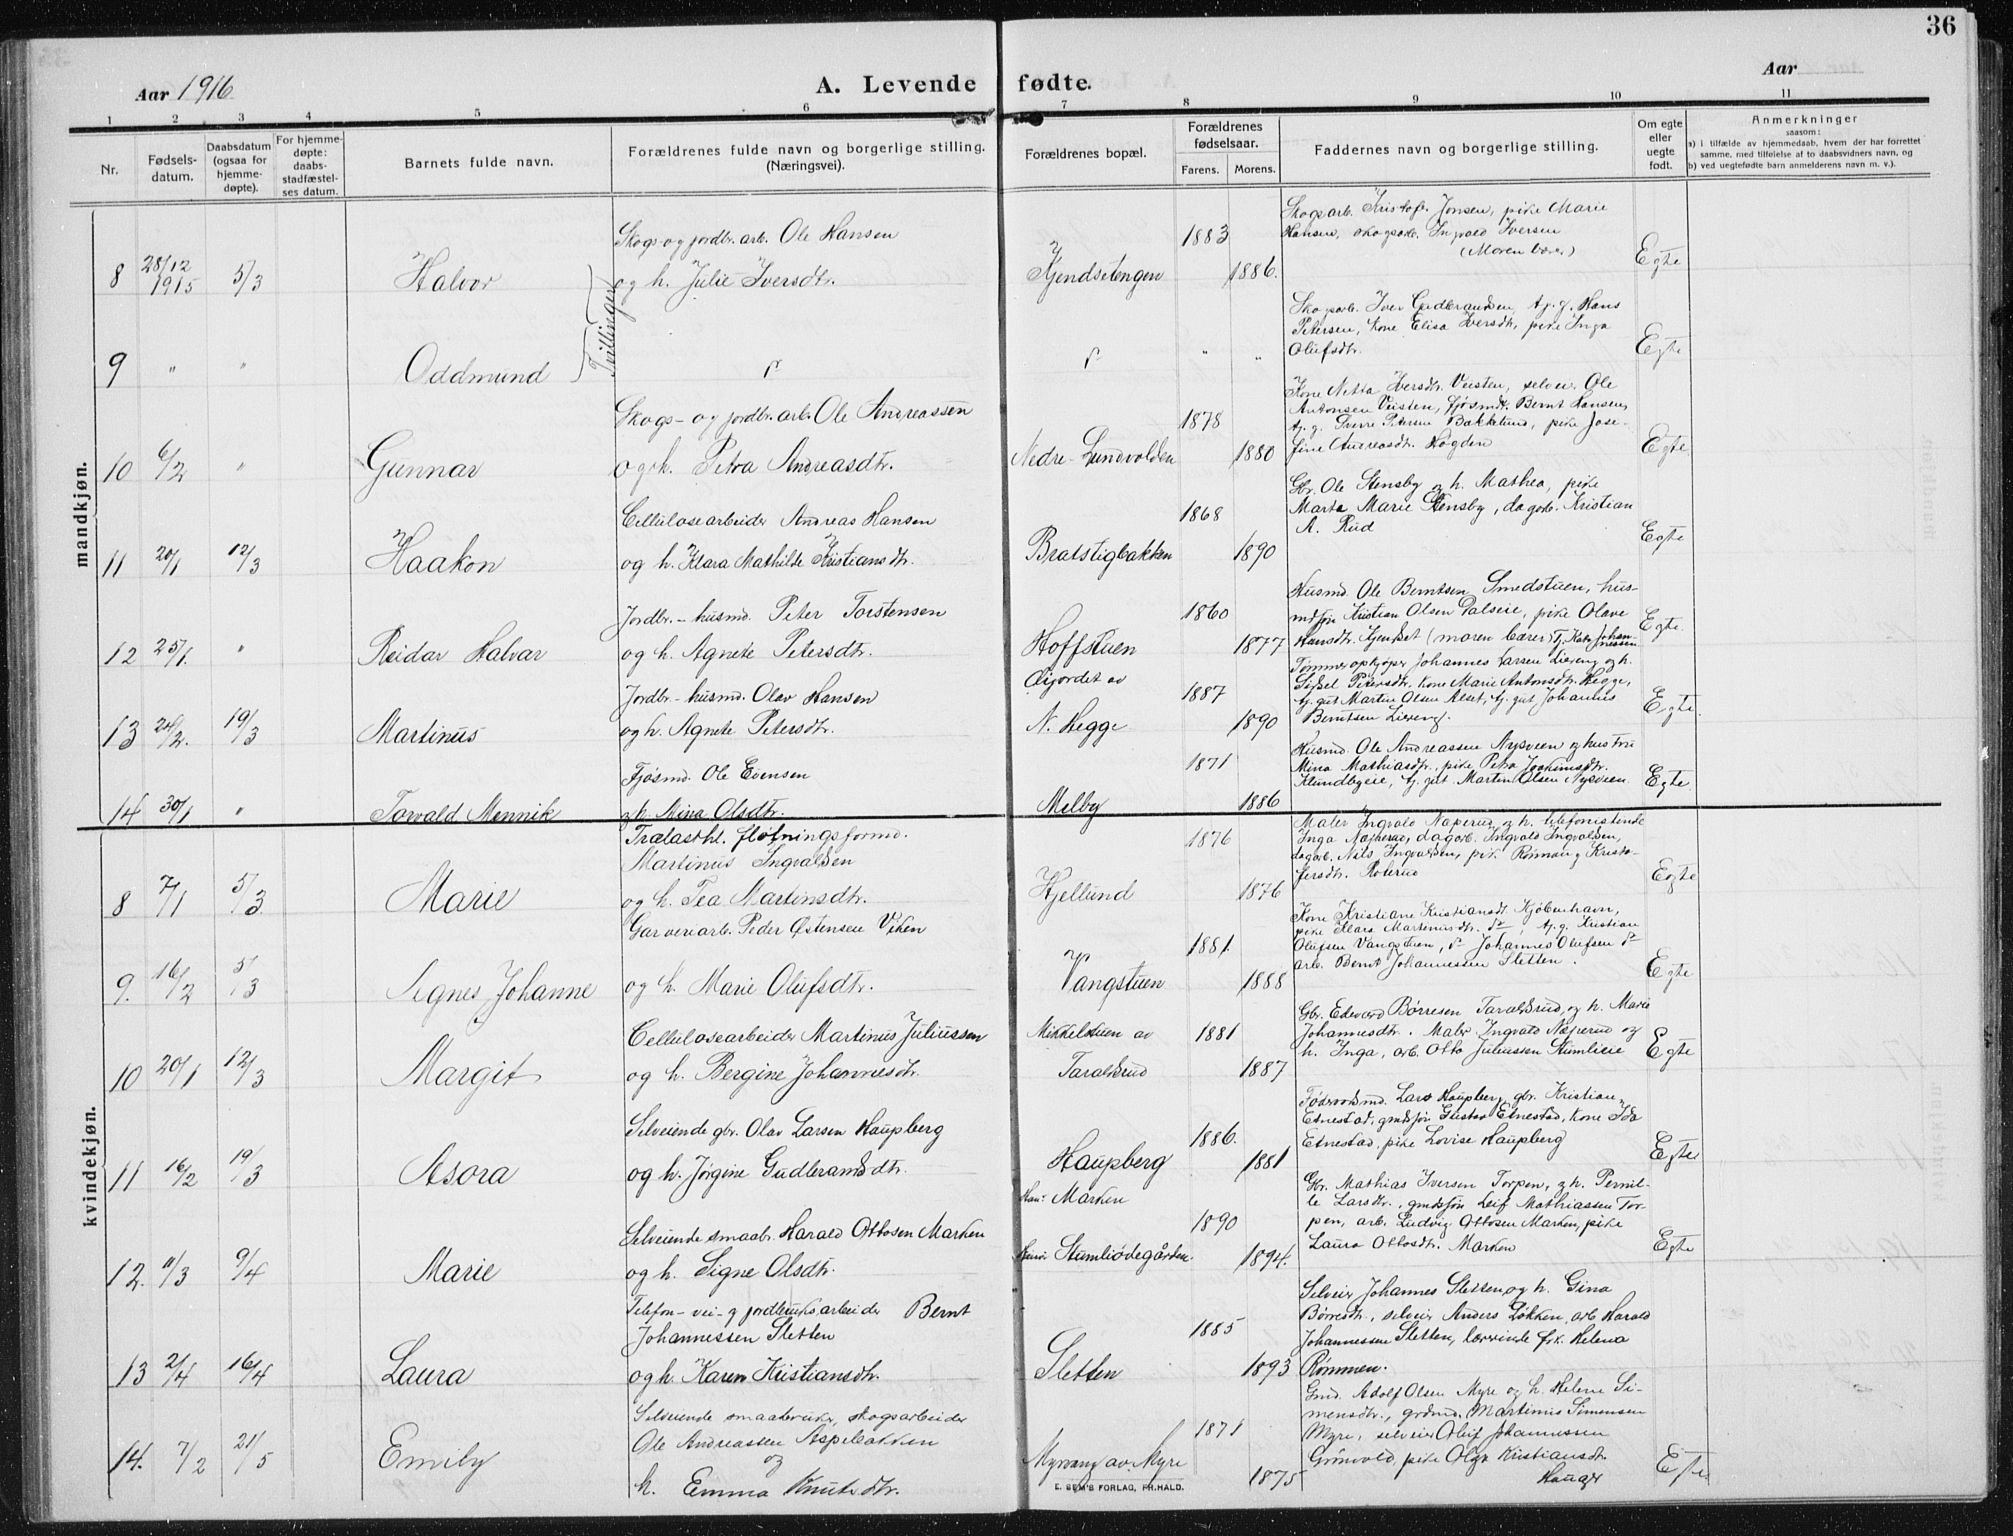 36
Aar 1916
A. Levende fødte.
Aar
1 2 3 4 5 6 7 8 9 10 11
Nr.
Fødsels-
datum.
Daabsdatum
(ogsaa for
hjemme-
døpte).
For hjemme-
døpte:
daabs-
stadfæstel-
ses datum.
Barnets fulde navn.
Forældrenes fulde navn og borgerlige stilling.
(Næringsvei).
Forældrenes bopæl.
Forældrenes
fødselsaar.
Farens. Morens.
Faddernes navn og borgerlige stilling.
Om egte
eller
uegte
født.
Anmerkninger
saasom:
a) i tilfælde av hjemmedaab, hvem der har forrettet
samme, med tilføielse af to daabsvidners navn, og
b) ved uegtefødte barn anmelderens navn m. v.).
mandkjøn.
8 28/12 1915 5/3 Halvor
Skogs- og jordbr. arb. Ole Hansen
og h. Julie Iversdtr.
Kjendsetengen 1883 1886.
Skogsarb. Kristofr. Jonsen, pike Marie
Hansen, skogsarb. Ingvald Iversen
(Moren bærer)
Egte
Tvillinger
9 " " Oddmund
" "
Skogsarb. Iver Gudbrandsen, tj. g. Hans
Petersen, kone Elisa Iversdtr, pike Inga
Olufsdtr.
Egte
10 6/2 " Gunnar
Skogs- og jordbr. arb. Ole Andreassen
og h. Petra Andreasdtr.
Nedre-Lundvolden 1878 1880
Kone Netta Iversdtr. Veisten, selveier Ole
Antonsen Veisten, fjøsmdt. Bernt Hansen,
tj. g. Sverre Petersen Bakkelund, pike Jose-
fine Andreasdtr. Hogden
Egte
11 20/1 12/3 Haakon
Cellulosearbeider Andreas Hansen
og h. Klara Mathilde Kristiansdtr.
Bratstigbakken 1868 1890
Gbr. Ole Stensby og h. Mathea, pike
Marta Marie Stensby, dagarb. Kristian
A. Rud
Egte
12 25/1. " Reidar Halvar
Jordbr.-husmd. Peter Torstensen
og h. Agnete Petersdtr.
Hoffstuen 1860 1877
Husmd. Ole Berntsen Smedstuen, hus-
mdsøn Kristian Olsen Palseie, pike Olave
Hansdtr. Kjendset (moren bærer)
Egte.
13 24/2. 19/3 Martinus
Jordbr-husmd. Olav Hansen
og h. Agnete Petersdtr.
Øigordet av
N. Hegge 1887 1890
Tømmeropkjøper Johannes Larsen Liereng og h.
Sissel Petersdtr, kone Marie Antonsdtr. Hegge,
tj. gut Martin Olsen Alset, tj. gut Johannes
Berntsen Liereng.
Egte.
14 30/1 " Torvald Mennik
Fjøsmd. Ole Evensen
og h. Mina Olsdtr.
Melby 1871 1886
Husmd. Ole Andreassen Nysveen og hustru
Mina Mathiasdtr, pike Petra Joakimsdtr.
Klundbyeie, tj. gut Martin Olsen Nysveen.
Egte
kvindekjøn.
8 7/1 5/3 Marie
Trælasthl. fløtningsformd.
Martinus Ingvaldsen
og h. Tea Martinsdtr.
Hjellund 1876 1876
Maler Ingvald Næperud og h. telefonistinde
Inga Næperud, dagarb. Ingvald Ingvaldsen,
dagarb. Nils Ingvaldsen, pike Rønnaug Kristo-
fersdtr. Roterud
Egte
9. 16/2 5/3 Agnes Johanne
Garveriarb. Peder Østensen Viken
og h. Marie Olufsdtr.
Vangstuen 1881 1888
Kone Kristiane Kristiansdt. Kjøbenhavn,
pike Klara Martinusdtr. do, tj. g. Kristian
Olufsen Vangstuen, do Johannes Olufsen do
arb. Bernt Johannessen Sletten.
Egte
10 20/1 12/3 Margit
Cellulosearbeider Martinus Juliussen
og h. Bergine Johannesdtr.
Mikkelstuen av
Taraldsrud 1881 1887
Gbr. Edevard Børresen Taraldsrud, og h. Marie
Johannesdtr. Maler Ingvald Næperud og
h. Inga, arb. Otto Juliussen Stumlieie
Egte
11 16/2 19/3 Asora
Selveiende gbr. Olav Larsen Haupberg
og h. Jørgine Gudbrandsdtr.
Haupberg 1886. 1881
Fødsraadsmd. Lars Haupberg, gbr. Kristian
Etnestad, gmdsøn Gustav Etnestad, kone Ida
Etnestad, pike Lovise Haupberg
Egte
12. 11/3 9/4 Marie
Selveiende smaabr. Harald Ottosen Marken
og h. Signe Olsdtr.
Han: Marken
Hun: Stumliødegården. 1890 1894.
Gbr. Mathias Iversen Torpen, og h. Pernil-
le Larsdtr., gmdsøn Leif Mathiassen Tor-
pen, arb. Ludvig Ottosen Marken, pike
Laura Ottosdtr. Marken
Egte
13 2/4 16/4 Laura
Telefon- vei- og jordbruksarbeider Bernt
Johannessen Sletten
og h. Karen Kristiansdtr.
Sletten 1885 1893
Selveier Johannes Sletten, og h. Gina
Børresdtr., selveier Anders Løkken, arb Harald
Johannessen Sletten, lærerinde frk. Helena
Rømmen.
14. 7/2 21/5 Emily
Selveiende smaabruker, skogsarbeider
Ole Andreassen Aspebakken
og
h. Emma Knutsdtr.
Myrvang av Myre 1871 1875
Gmd. Adolf Olsen Myre og h. Helene Si-
mensdtr., grdmd. Martinus Simensen
Myre, selveier Oluf Johannessen
Grønvold, pike Olga Kristiansdtr
Hauger
Egte
E. SEM'S FORLAG, FR.HALD.